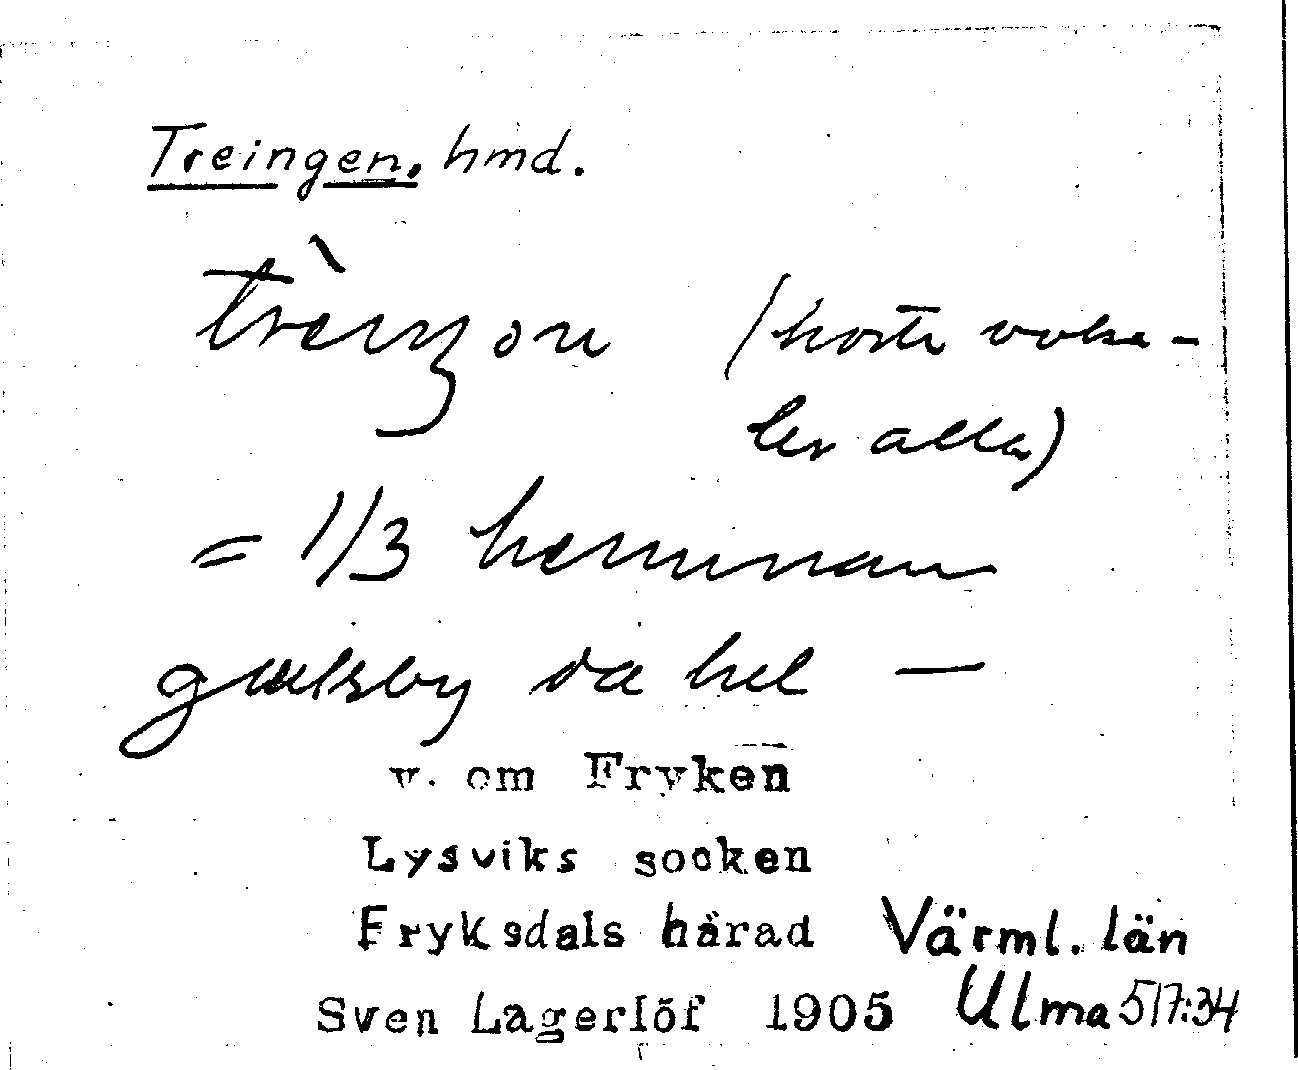 Treingen, hmd.
(korta voka-
ler alla)
= 1/3 hemman
va hel —
v. om Fryken
Lysviks socken
Fryksdals härad Värml. län
Sven Lagerlöf 1905 Ulma 517:34